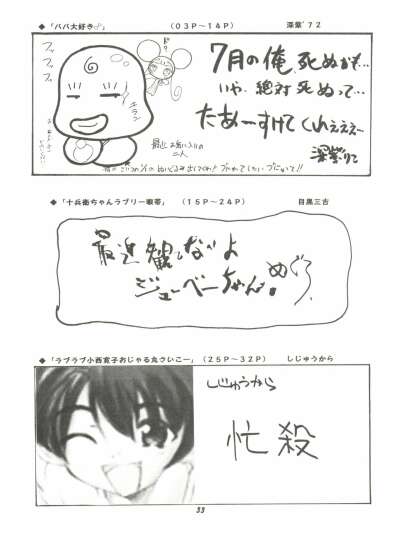 ◆・「パパ大好き♂」 (03P～14P) 深紫'72
7月の俺、死ぬかも…
いや、絶対死ぬって…
たあーすけてくれぇぇぇー
深紫りこ
フッフッフッ
最近お気に入りの
二人
◆・「十兵衛ちゃんラブリー眼帯」 (15P～24P) 目黒三吉
最近観ないよ
ジューベーちゃん!
めぐろ
◆・「ラブラブ小西寛子おじゃる丸さいこー」 (25P～32P) しじゅうから
しじゅうから
忙殺
33